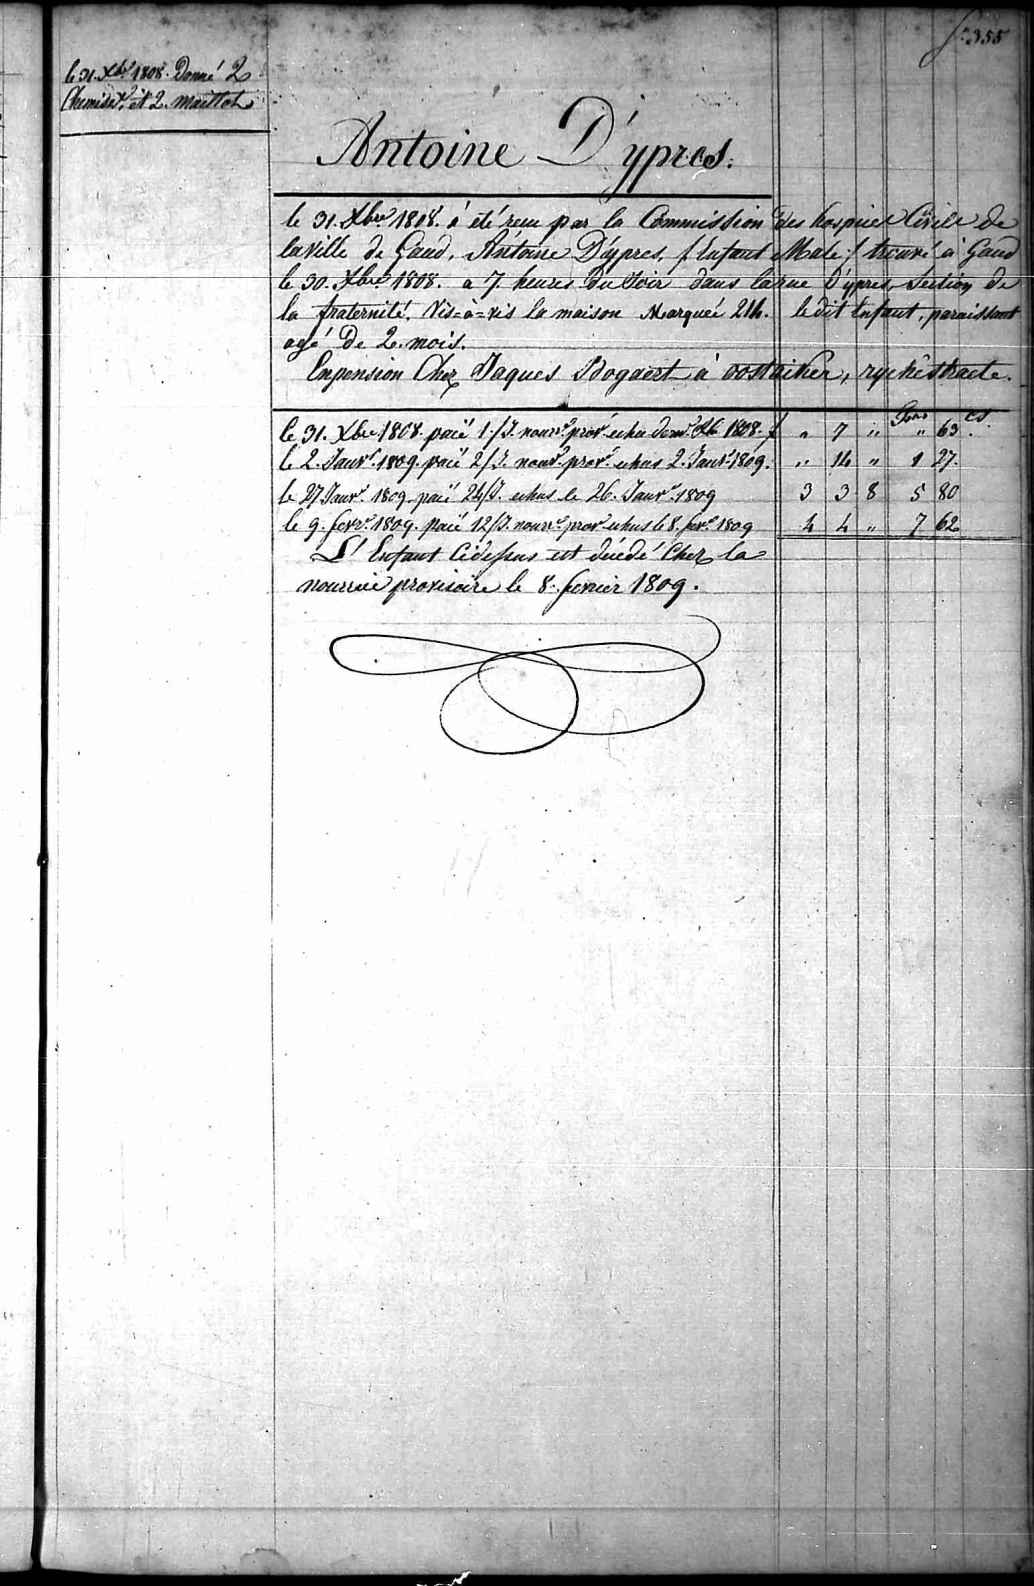 fo. 355
le 31. Xbre 1808. Donné 2
Chemises, et 2. maillots
Antoine D'ypres.
le 31. Xbre 1808. a été reçu par la Commission des hospices Civils de
la Ville de Gand, Antoine D'ypres, / Enfant Male / trouvé à Gand
le 30. Xbre 1808. a 7. heures du Soir dans la rue D'ypres, Section de
la fraternité, Vis=à=vis la maison Marquée 214. le dit Enfant, paraissant
agé de 2. mois.
Enpension Chez Jaques Bogaert à oostacker, rychestraete.
frs cs
le 31. Xbre 1808. paié 1/J. nourre provre echu 1808. f " 7 " " 63.
le 2. Janvr 1809. paié 2/J. nourre provre echus 2. Janvr 1809. " 14 " 1 27.
le 27 Janvr 1809 paié 24/J. echus le 26. Janvr 1809 3 3 8 5 80
le 9. fevrr 1809. paié 12/J. nourre provre echus le 8. fevr 1809 4 4 " 7 62
L'Enfant Cidessus est décédé Chez la
nourrice provisoire le 8. fevrier 1809.